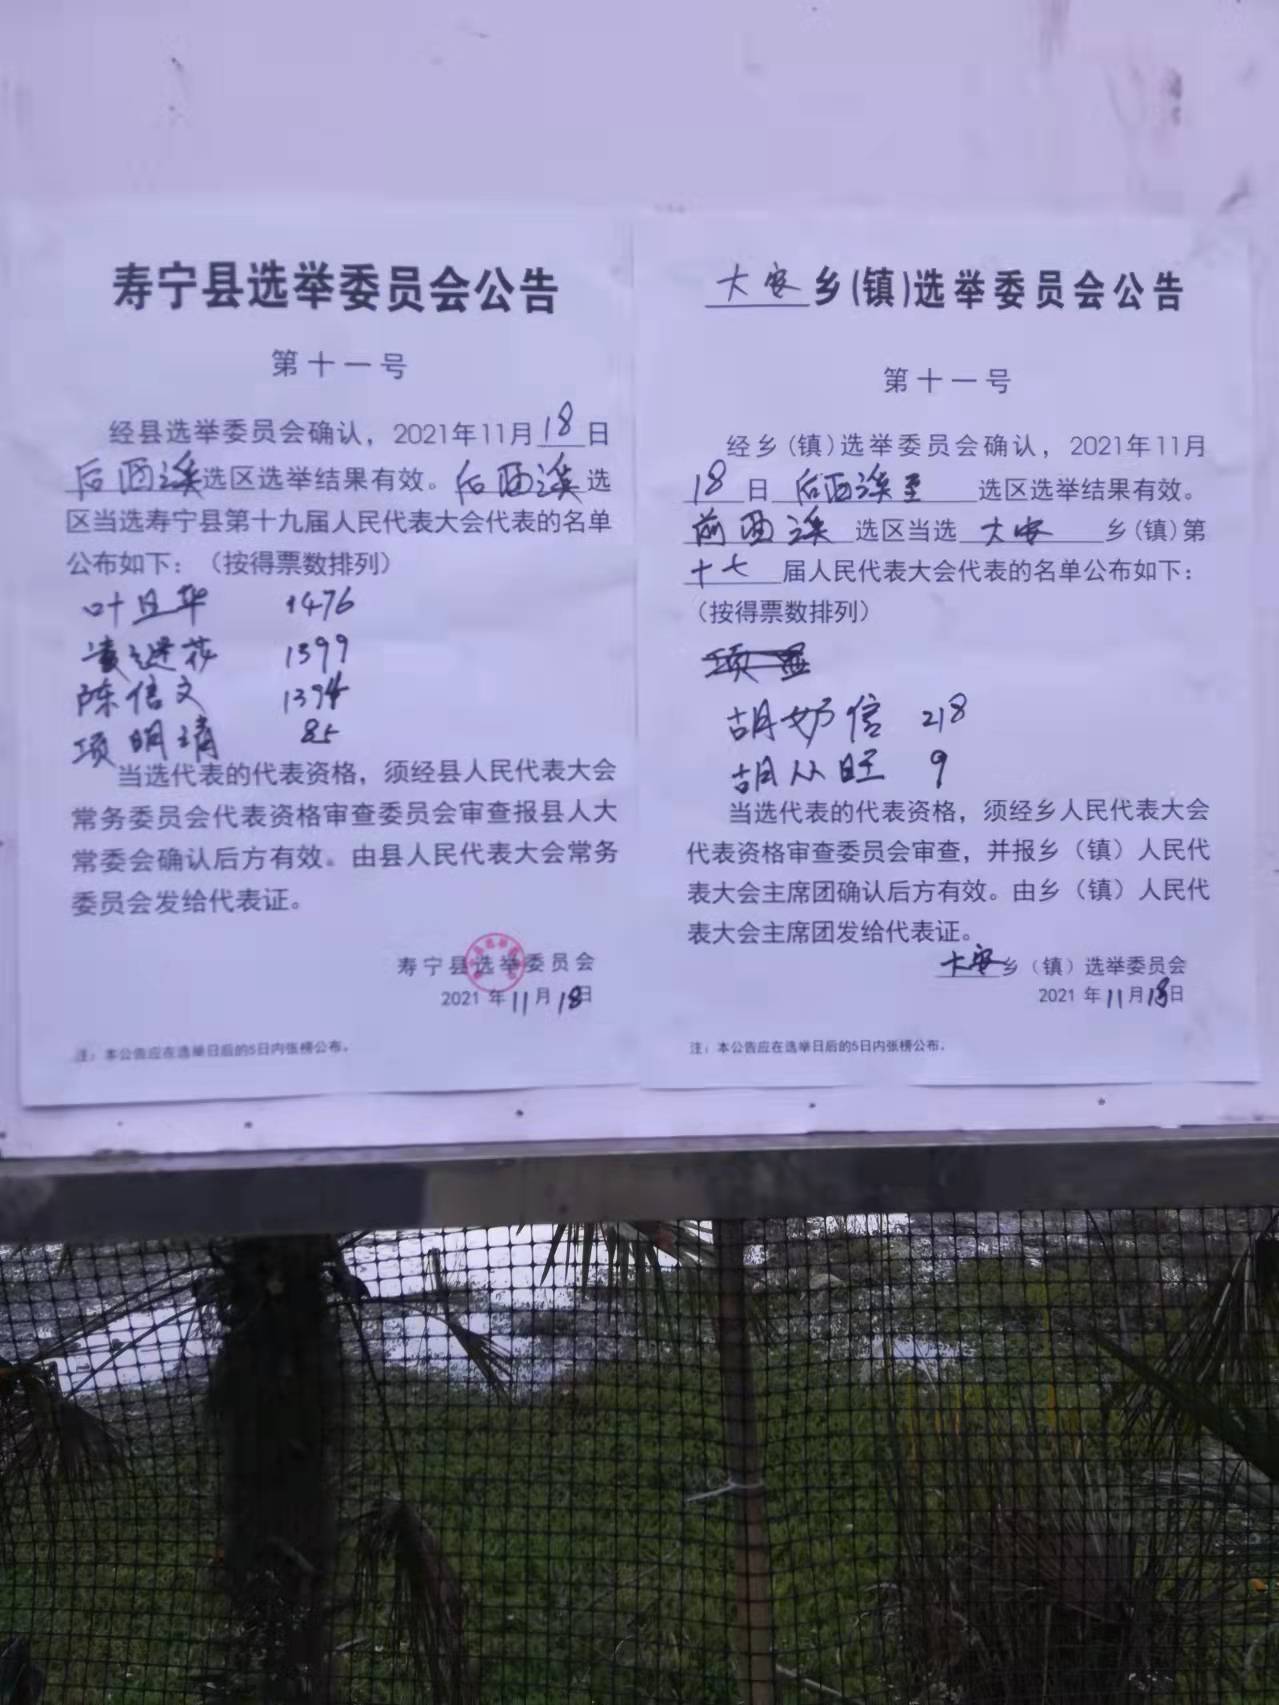 寿宁县选举委员会公告
第十一号
经县选举委员会确认，2021年11月18日
后西溪选区选举结果有效。后西溪选
区当选寿宁县第十九届人民代表大会代表的名单
公布如下：（按得票数排列）
叶旦华 1476
继花 1399
陈信文 1394
项明清 85
当选代表的代表资格，须经县人民代表大会
常务委员会代表资格审查委员会审查报县人大
常委会确认后方有效。由县人民代表大会常务
委员会发给代表证。
寿宁县选举委员会
2021年11月18日
注：本公告应在选举日后的5日内张榜公布。
大安乡(镇)选举委员会公告
第十一号
经乡(镇)选举委员会确认，2021年11月
18日后西溪至选区选举结果有效。
前西溪选区当选大安乡(镇)第
十七届人民代表大会代表的名单公布如下：
（按得票数排列）
胡奶信 218
胡从旺 9
当选代表的代表资格，须经乡人民代表大会
代表资格审查委员会审查，并报乡（镇）人民代
表大会主席团确认后方有效。由乡（镇）人民代
表大会主席团发给代表证。
大安乡（镇）选举委员会
2021年11月18日
注：本公告应在选举日后的5日内张榜公布。